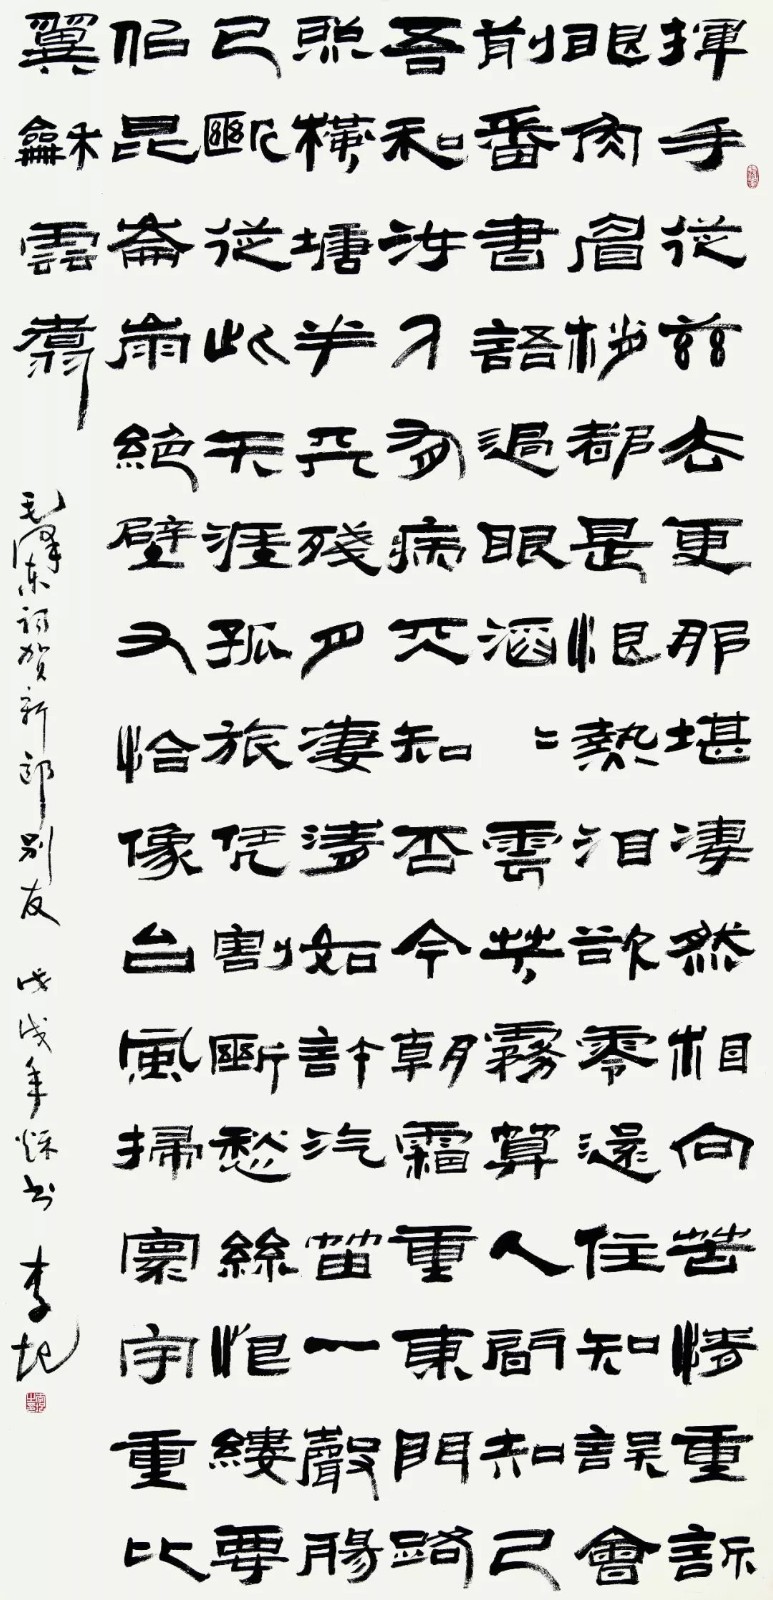 揮手從茲去更那堪淒然相向苦情重訴
眼角眉梢都是恨熱泪欲零還住知誤會
前番書語過眼滔〻雲共霧算人間知己
吾和汝人有病天知否今朝霜重東門路
照橫塘半天殘月凄清如許汽笛一聲腸
已斷從此天涯孤旅凭割斷愁絲恨縷要
似崑崙崩絕壁又恰像台風掃寰宇重比
翼龢雲翥
毛澤东词贺新郎别友 戊戌年秌书 李